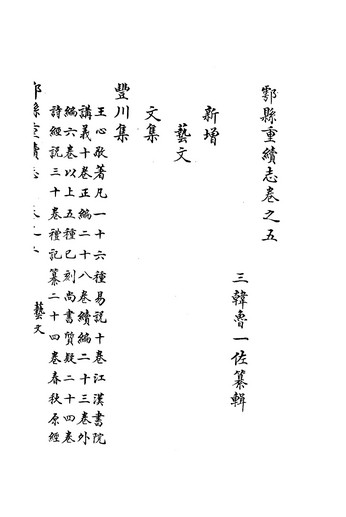 鄠縣重續志卷之五
三韓魯一佐纂輯
新增
藝文
文集
豐川集
王心敬著凡一十六種易說十卷江漢書院
講義十卷正編二十八卷續編二十三卷外
編六卷以上五種已刻尚書質疑二十四卷
詩經說三十卷禮記纂二十四卷春秋原經
鄠縣重續志
藝文